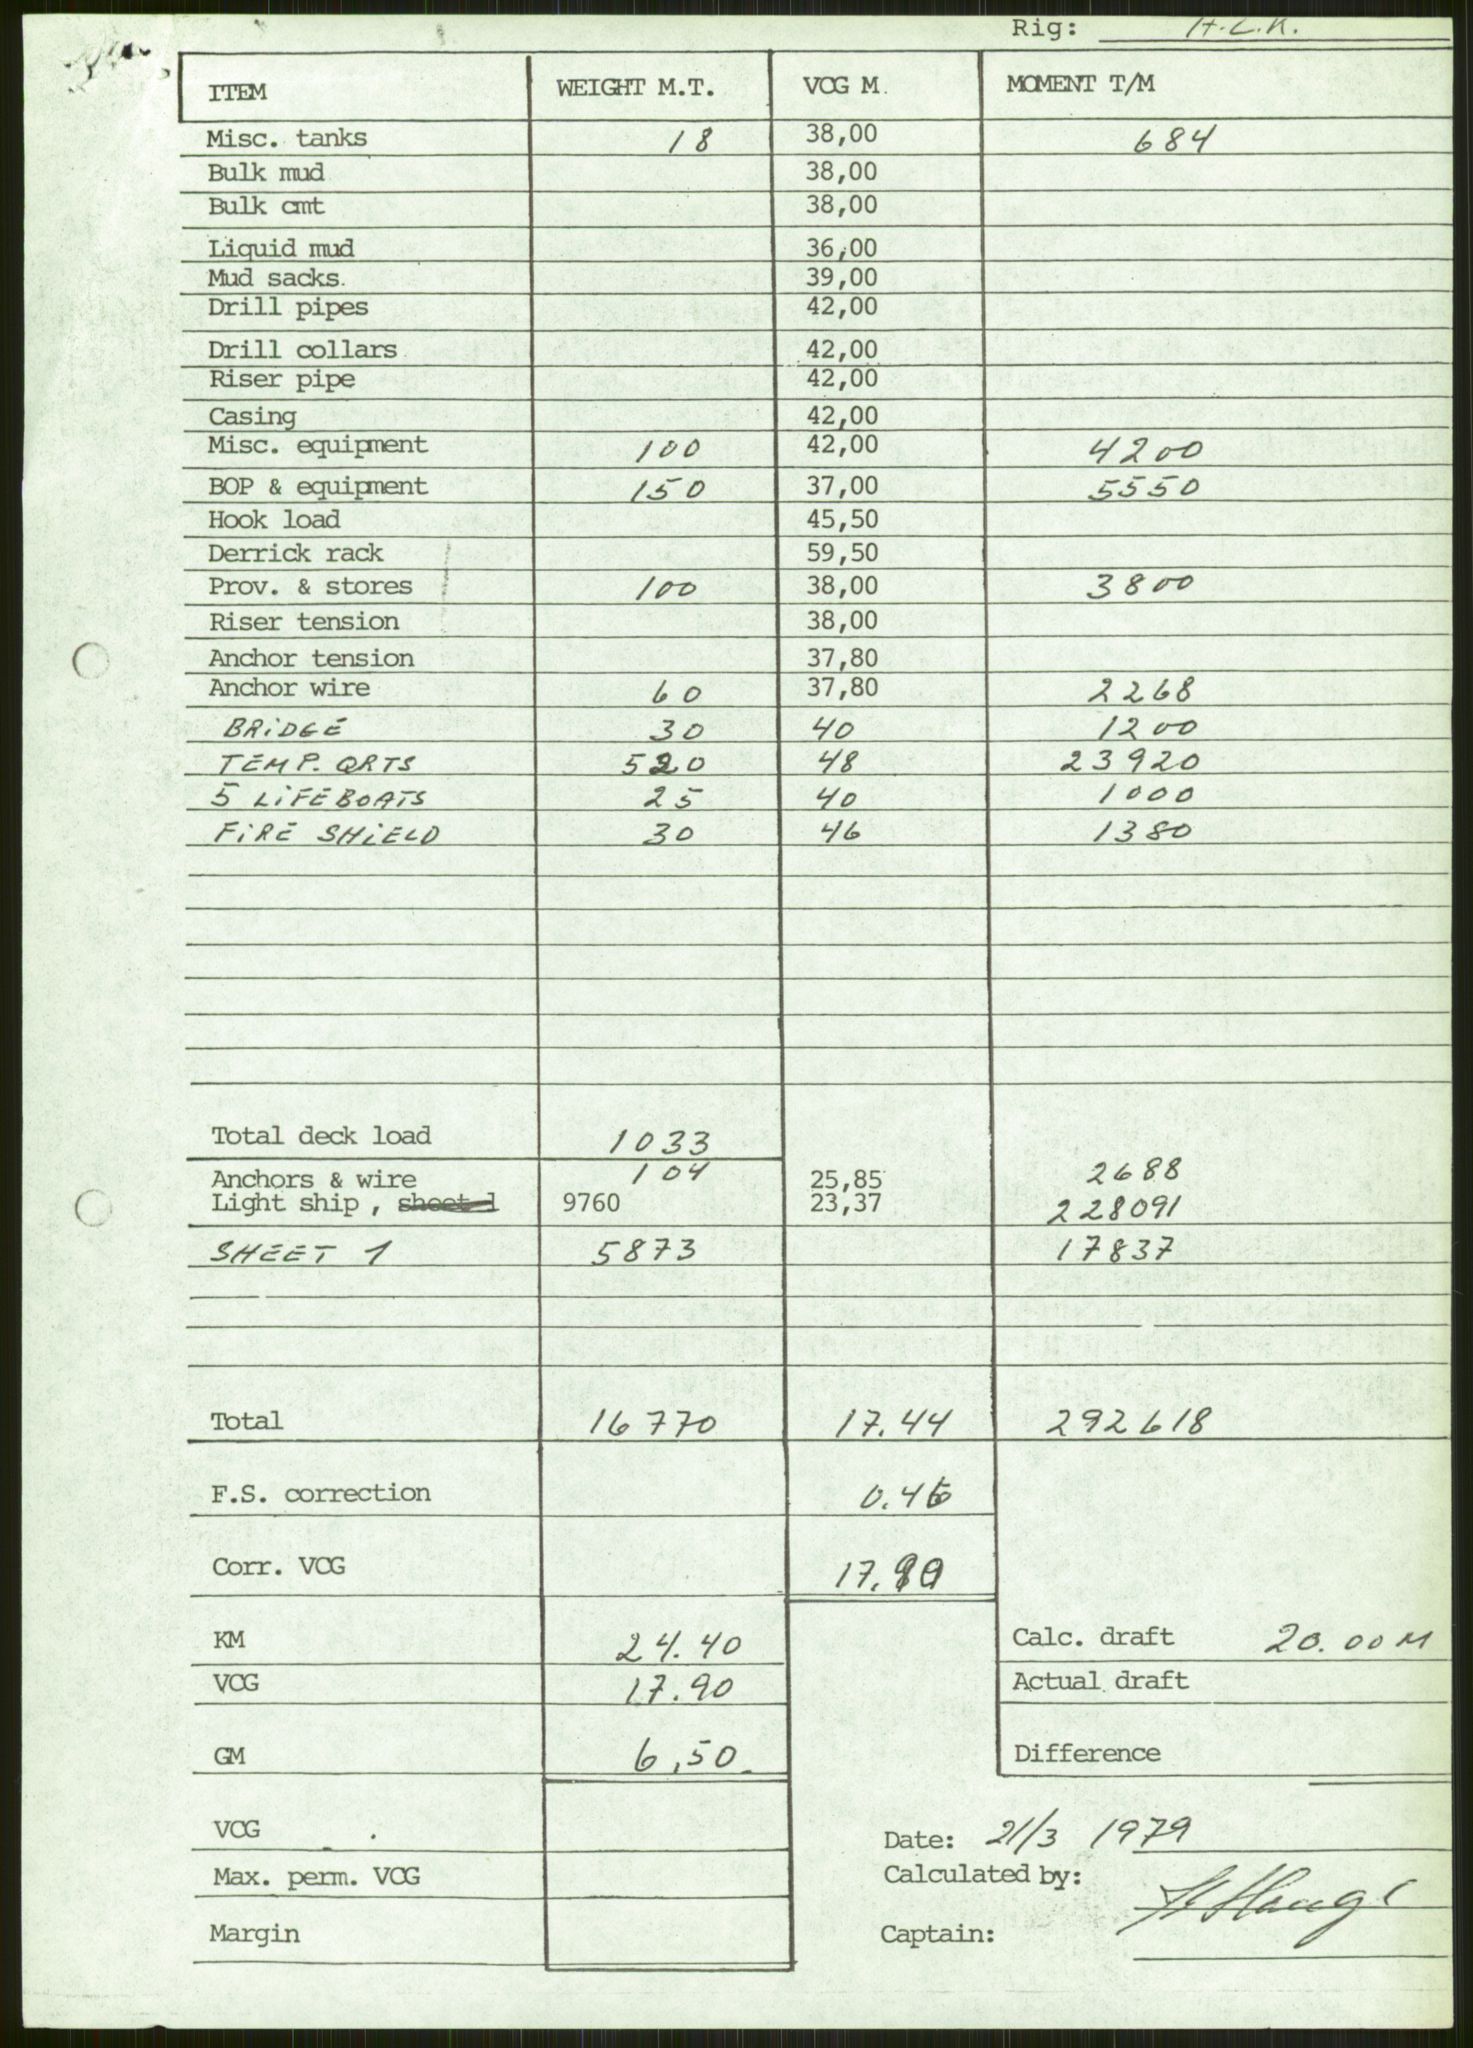 Rig: H.L.K.
ITEM WEIGHT M.T. VCG M. MOMENT T/M
Misc. tanks 18 38,00 684
Bulk mud 38,00
Bulk cmt 38,00
Liquid mud 36,00
Mud sacks. 39,00
Drill pipes 42,00
Drill collars 42,00
Riser pipe 42,00
Casing 42,00
Misc. equipment 100 42,00 4200
BOP & equipment 150 37,00 5550
Hook load 45,50
Derrick rack 59,50
Prov. & stores 100 38,00 3800
Riser tension 38,00
Anchor tension 37,80
Anchor wire 60 37,80 2268
BRIDGE 30 40 1200
TEMP. QRTS 520 48 23920
5 LIFEBOATS 25 40 1000
FIRE SHIELD 30 46 1380
Total deck load 1033
Anchors & wire 104 25,85 2688
Light ship, sheet 1 9760 23,37 228091
SHEET 1 5873 17837
Total 16770 17.44 292618
F.S. correction 0.46
Corr. VCG 17.90
KM 24.40 Calc. draft 20.00 M
VCG 17.90 Actual draft
GM 6,50. Difference
VCG
Date: 21/3 1979
Max. perm. VCG Calculated by:
Margin Captain: